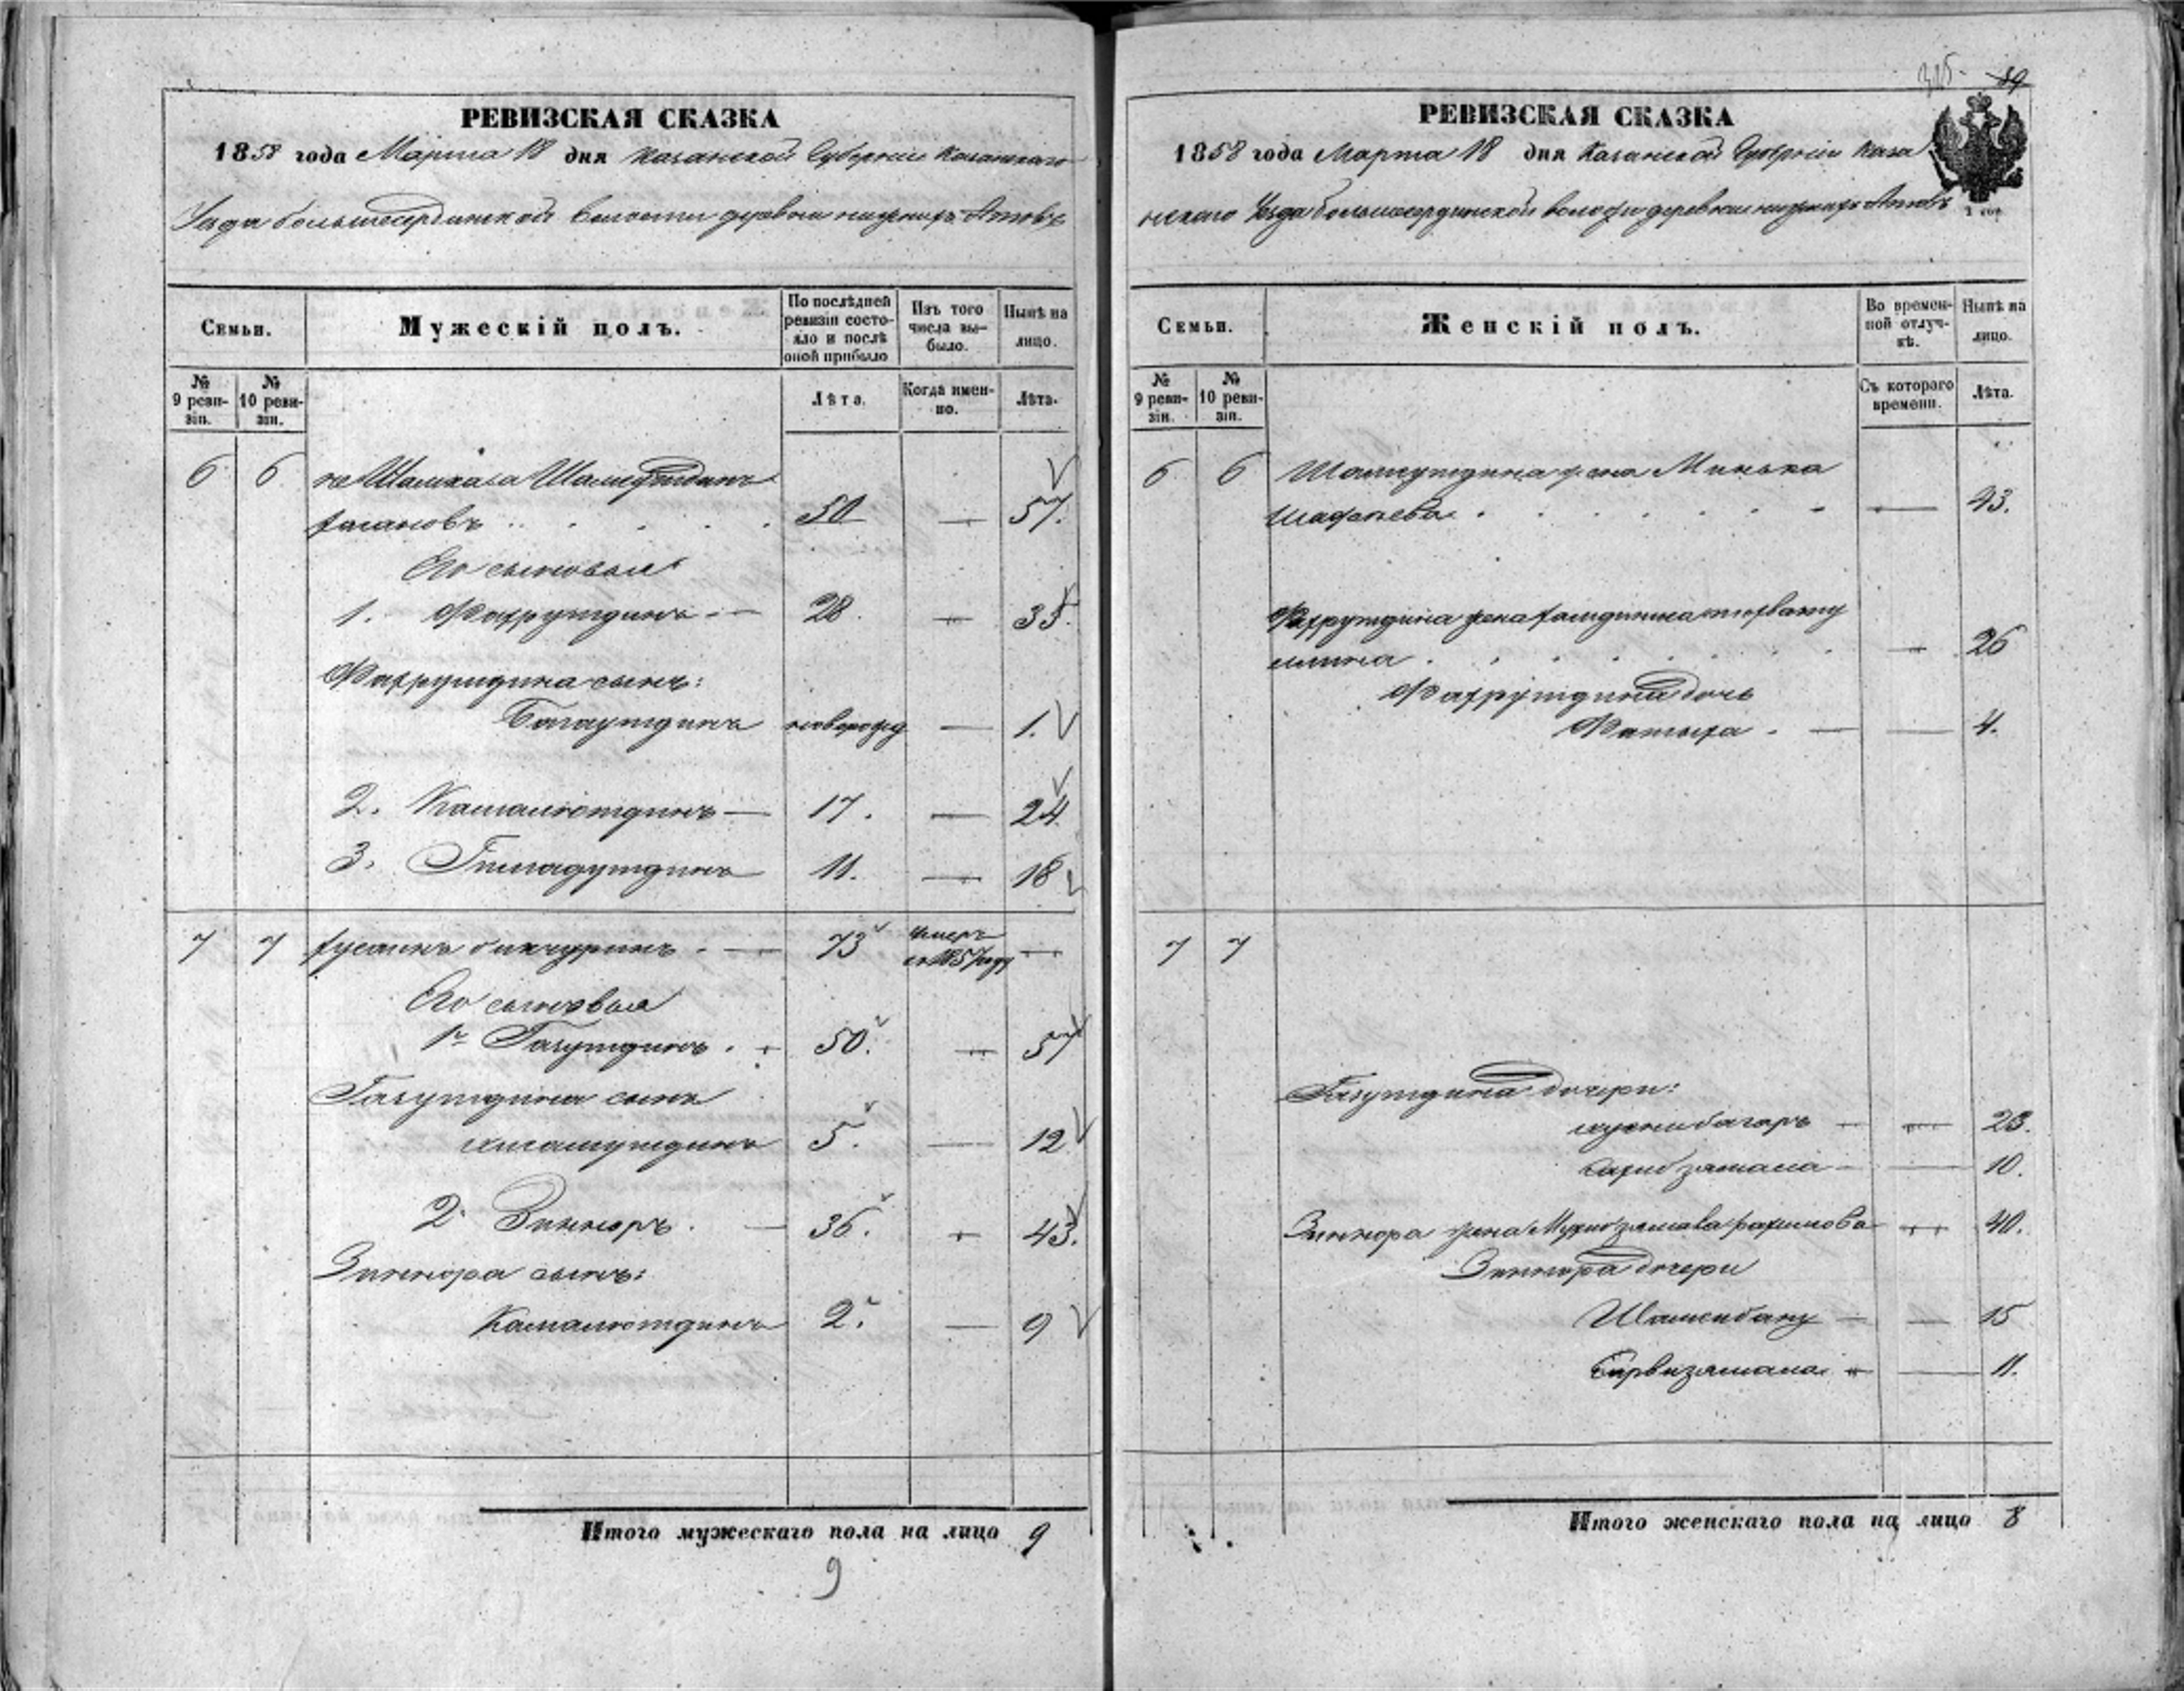 РЕВИЗСКАЯ СКАЗКА
1858 года Марта 18 дня Казанской Губернiи Казанскаго
Уѣзда большесердинской волости деревни нижнихъ Атовъ
Семьи.
Мужескiй полъ.
По послѣдней ревизiи состояло и послѣ оной прибыло
Изъ того числа выбыло.
Нынѣ на лицо.
№ 9 ревизiи.
№ 10 ревизiи.
Лѣта.
Когда именно.
Лѣта.
6 6 Шамсутдинъ
50 — 57.
Его сыновья
1. Фахрутдинъ — 28. — 35.
Фахрутдина сынъ:
Багаутдинъ новорожд — 1.
2. Камалютдинъ — 17. — 24.
3. Гимадутдинъ 11. — 18
7 7 Хусаинъ бикчуринъ. — 73 умеръ въ 1857 году —
Его сыновья
1й Газутдинъ. 50. — 57
Газутдина сынъ
5. — 12
2. Зинноръ. — 36. — 43.
Зиннора сынъ:
Камалютдинъ 2. — 9
Итого мужескаго пола на лицо 9
9
315. 89
РЕВИЗСКАЯ СКАЗКА
1858 года Марта 18 дня Казанской Губернiи Каза
нскаго Уѣзда большесердинской волости деревни нижнихъ Атовъ
Семьи.
Женскiй полъ.
Во временной отлучкѣ.
Нынѣ на лицо.
№ 9 ревизiи.
№ 10 ревизiи.
Съ котораго времени.
Лѣта.
6 6 Шамсутдина жена
— 43.
Фахрутдина жена
— 26
Фахрутдина дочь
Фатыха. — — 4.
7 7
Газутдина дочери:
— — 23.
— — 10.
Зиннора жена — 40.
Зиннора дочери
Шамсибану — — 15
— 11.
Итого женскаго пола на лицо 8